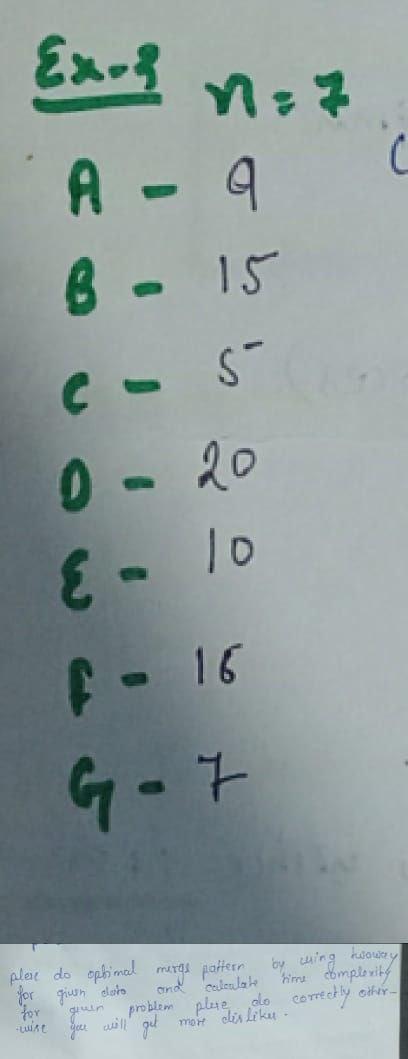 Ex-3 n = 7
A - 9
B - 15
C - 5
D - 20
E - 10
F - 16
G - 7
plese do optimal merge pattern by using twoway
for given data and calculate time complexity
for given problem plese do correctly other-
-wise you will get more dislikes.